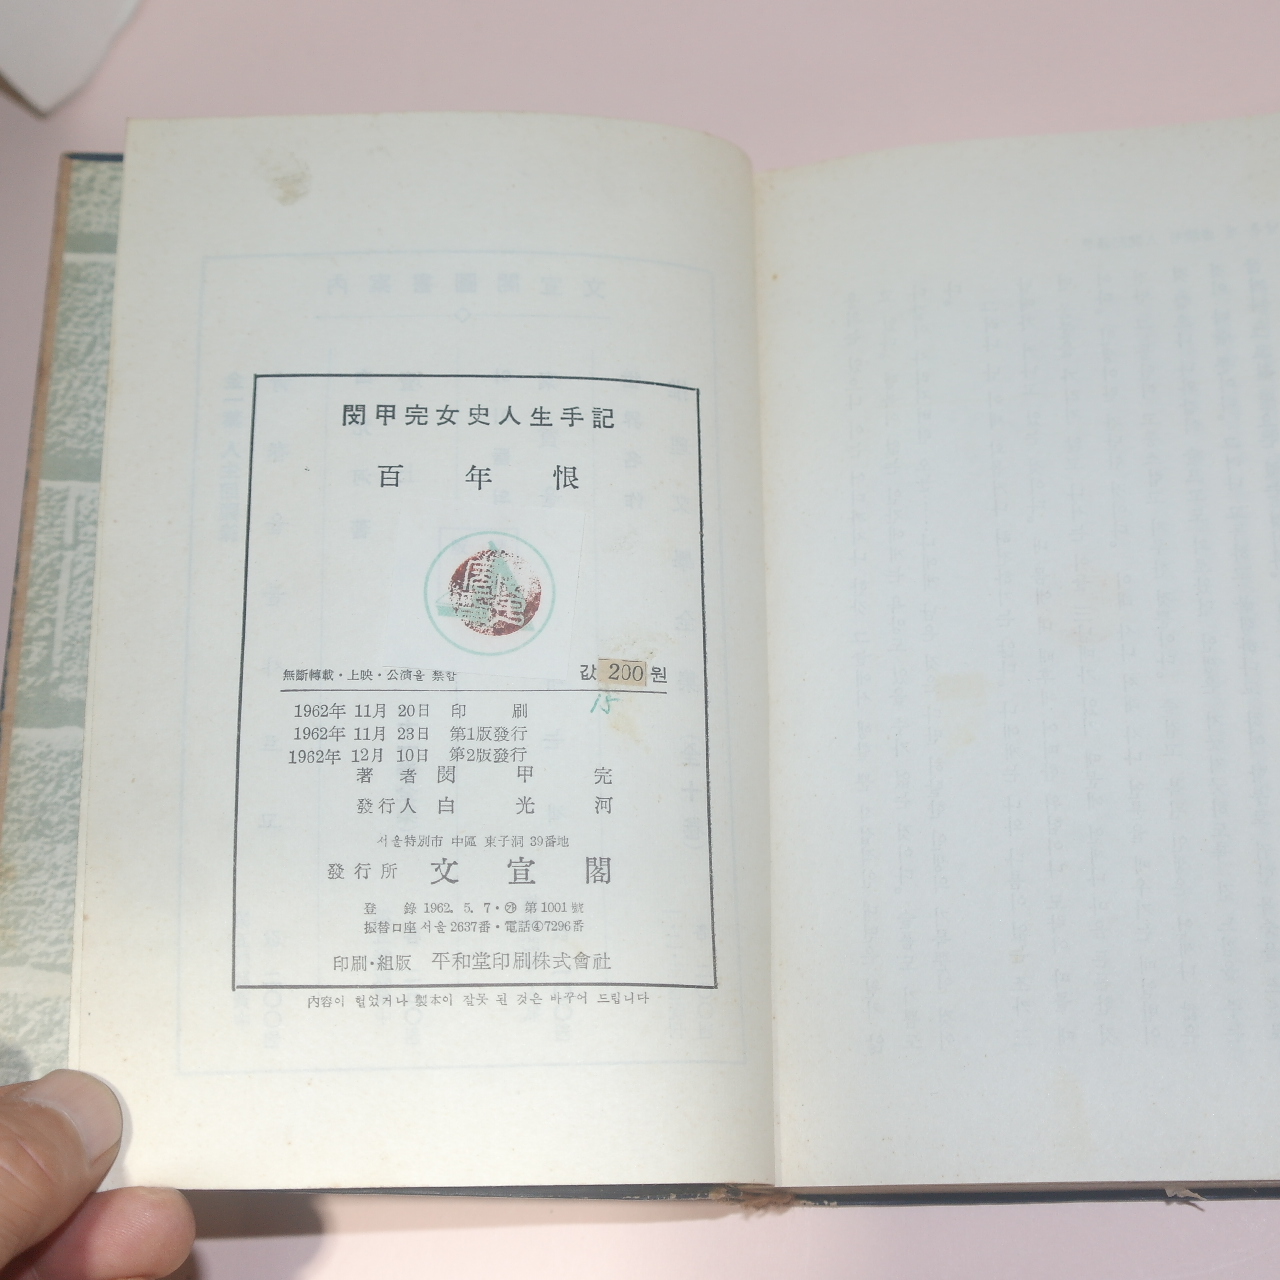 閔甲完女史人生手記
百年恨
無斷轉載·上映·公演을 禁함
값 200원
15
1962年 11月 20日 印刷
1962年 11月 23日 第1版發行
1962年 12月 10日 第2版發行
著者 閔甲完
發行人 白光河
서울特別市 中區 東子洞 39番地
發行所 文宣閣
登錄 1962. 5. 7·㉮ 第1001號
振替口座 서울 2637番·電話④7296番
印刷·組版 平和堂印刷株式會社
內容이 헐었거나 製本이 잘못 된 것은 바꾸어 드립니다